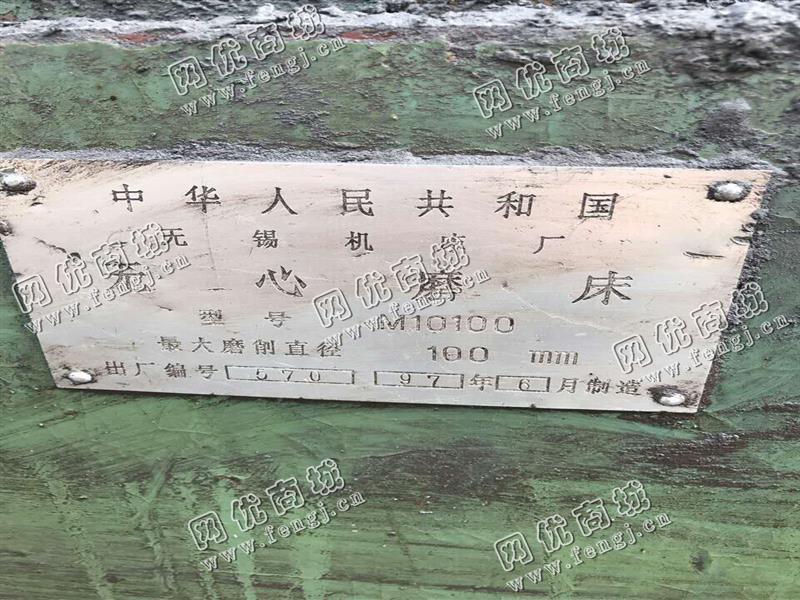 网优商城
www.fengj.cn
网优商城
www.fengj.cn
中华人民共和国
无锡机床厂
无心磨床
型号 M10100
最大磨削直径 100 mm
出厂编号 570 97 年 6 月制造
网优商城
www.fengj.cn
网优商城
www.fengj.cn
网优商城
www.fengj.cn
网优商城
www.fengj.cn
网优商城
www.fengj.cn